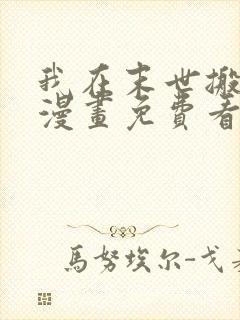 我在末世搬
漫畫免費看
馬努埃尔-戈